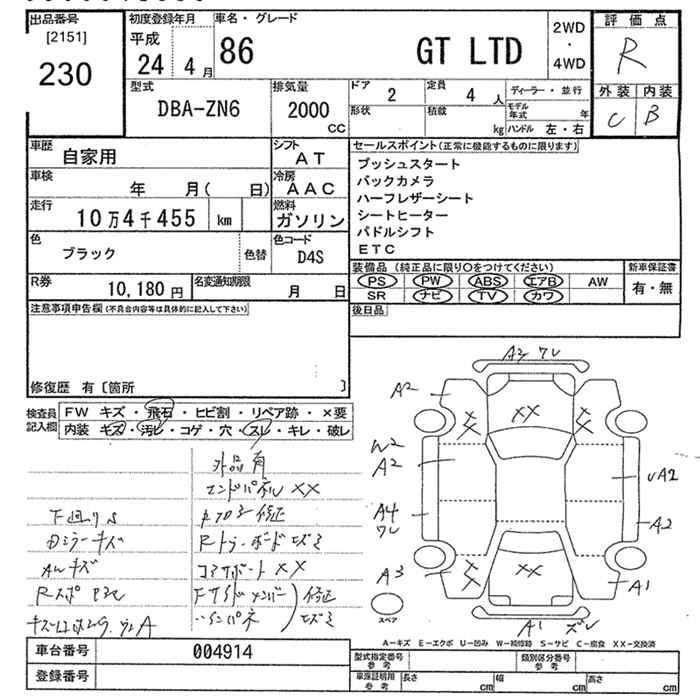 出品番号
[2151]
230
初度登録年月
平成
24 4月
車名・グレード
86 GT LTD
2WD
・
4WD
評価点
R
外装 内装
C B
型式
DBA-ZN6
排気量
2000
CC
ドア 2
定員 4人
ディーラー・並行
形状
積載 kg
モデル年式 年
ハンドル 左・右
車歴 自家用
シフト AT
車検 年 月( 日)
冷房 AAC
走行 10万4千455 km
燃料 ガソリン
色 ブラック
色替
色コード D4S
R券 10,180円
名変通知期限 月 日
セールスポイント(正常に機能するものに限ります)
プッシュスタート
バックカメラ
ハーフレザーシート
シートヒーター
パドルシフト
ETC
装備品 (純正品に限り○をつけてください)
新車保証書
PS PW ABS エアB AW
SR ナビ TV カワ
有・無
後日品
注意事項申告欄(不具合内容等は具体的に記入して下さい)
修復歴 有〔箇所 〕
検査員記入欄
FW キズ・飛石・ヒビ割・リペア跡・×要
内装 キズ・汚レ・コゲ・穴・スレ・キレ・破レ
外品有
エンドパネル ××
下廻りS
修正
Dミラーキズ
AWキズ
コアサポート ××
修正
A3 ワレ
A2
××
W2
A2
A4
ワレ
A3
UA2
A2
A1
××
A1 ズレ
スペア
A-キズ E-エクボ U-凹み W-補修跡 S-サビ C-腐食 XX-交換済
車台番号 004914
登録番号
型式指定番号 参考
類別区分番号 参考
車庫証明用 参考
長さ cm
幅 cm
高さ cm